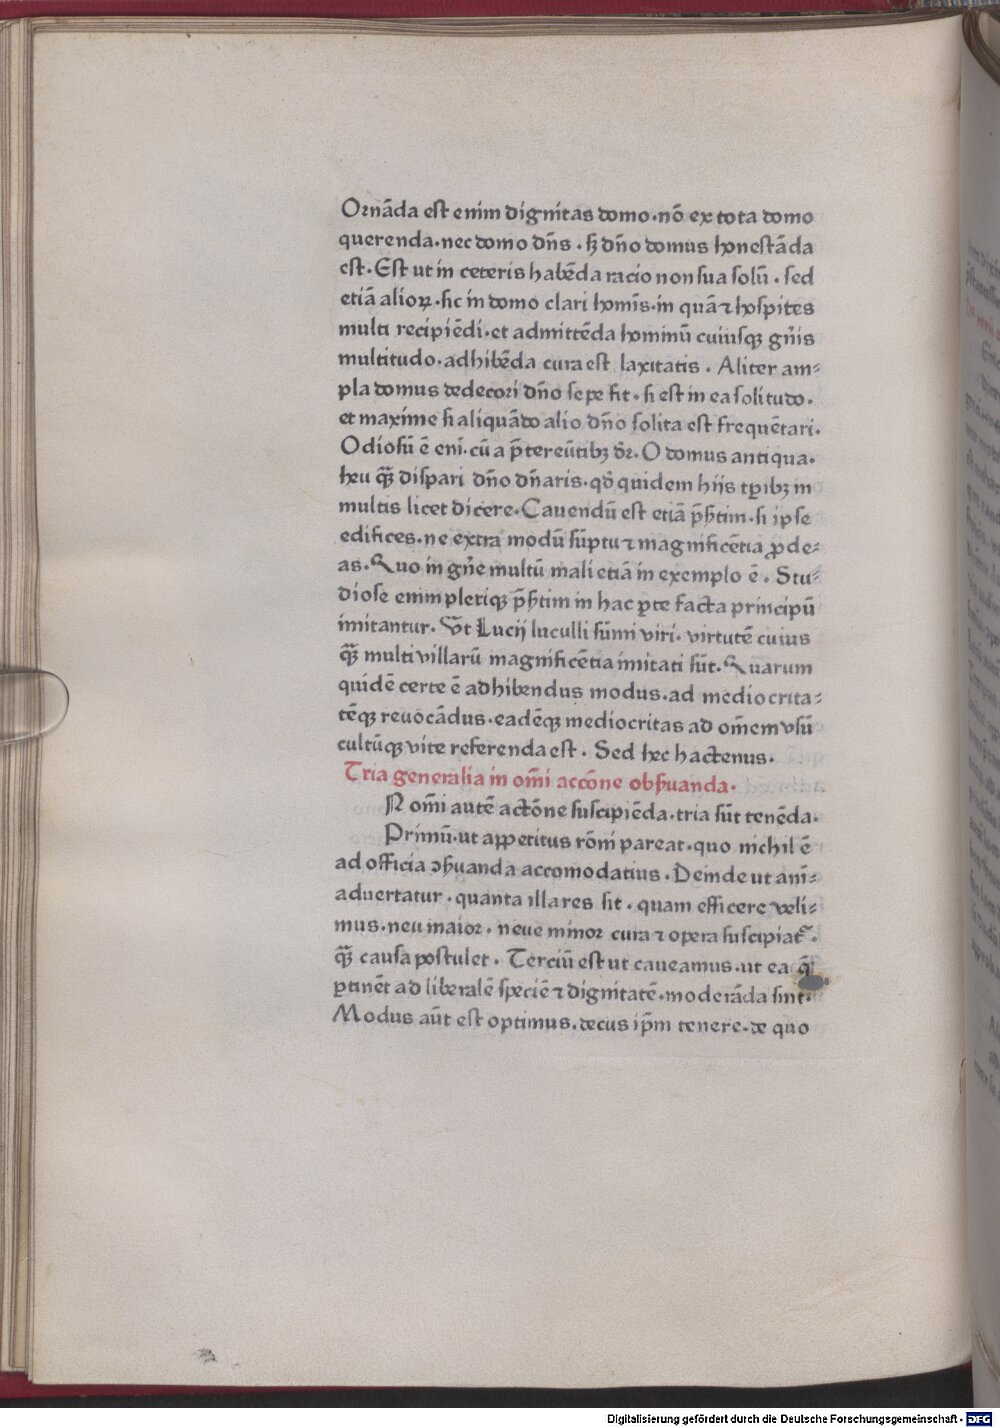 Ornāda est enim dignitas domo·nō ex tota domo
querenda·nec domo dn̄s·sꝫ dn̄o domus honestāda
est·Est ut in ceteris habēda racio non sua solū·sed
etiā alioꝝ·sic in domo clari homīs·in quā ⁊ hospites
multi recipiēdi·et admittēda hominū cuiusqꝫ gn̄is
multitudo·adhibēda cura est laxitatis·Aliter am⸗
pla domus dedecori dn̄o sepe fit·si est in ea solitudo·
et maxime si aliquādo alio dn̄o solita est frequētari·
Odiosū ē eni͞·cū a p̄tereūtibꝫ dr̄·O domus antiqua·
heu qꝫ̄ dispari dn̄o dn̄aris·qd̄ quidem hiis tꝑibꝫ in
multis licet dicere·Cauendū est etiā p̄sertim·si ipse
edifices·ne extra modū sūptu ⁊ magnificētia ꝓde⸗
as·Quo in gn̄e multū mali etiā in exemplo ē·Stu⸗
diose enim pleriqꝫ p̄sertim in hac ꝑte facta principū
imitantur·Ut Lucij luculli sūmi viri·virtutē cuius
qꝫ̄ multi villarū magnificētia imitati sūt·Quarum
quidē certe ē adhibendus modus·ad mediocrita⸗
tēqꝫ reuocādus·eadēqꝫ mediocritas ad om̄em vsū
cultūqꝫ vite referenda est·Sed hec hactenus·
Tria generalia in om̄i accōne obſuanda·
N om̄i autē actōne suscipiēda·tria sūt tenēda·
Primū·ut appetitus rōni pareat·quo nichil ē
ad officia ꝯſuanda accomodatius·Deinde ut ani⸗
aduertatur·quanta illa res sit·quam efficere veli⸗
mus·neu maior·neue minor cura ⁊ opera suscipiat᷑·
qꝫ̄ causa postulet·Terciū est ut caueamus·ut ea q̄
ꝑtinēt ad liberalē speciē ⁊ dignitatē·moderāda sint·
Modus aūt est optimus·decus ip̄m tenere·de quo
Digitalisierung gefördert durch die Deutsche Forschungsgemeinschaft - DFG